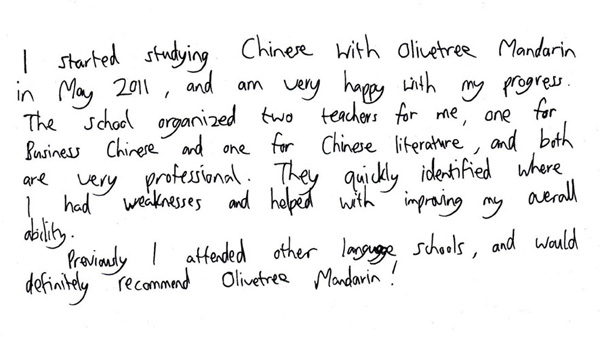 I started studying Chinese with Olivetree Mandarin
in May 2011, and am very happy with my progress.
The school organized two teachers for me, one for
Business Chinese and one for Chinese literature, and both
are very professional. They quickly identified where
I had weaknesses and helped with improving my overall
ability.
Previously I attended other language schools, and would
definitely recommend Olivetree Mandarin!